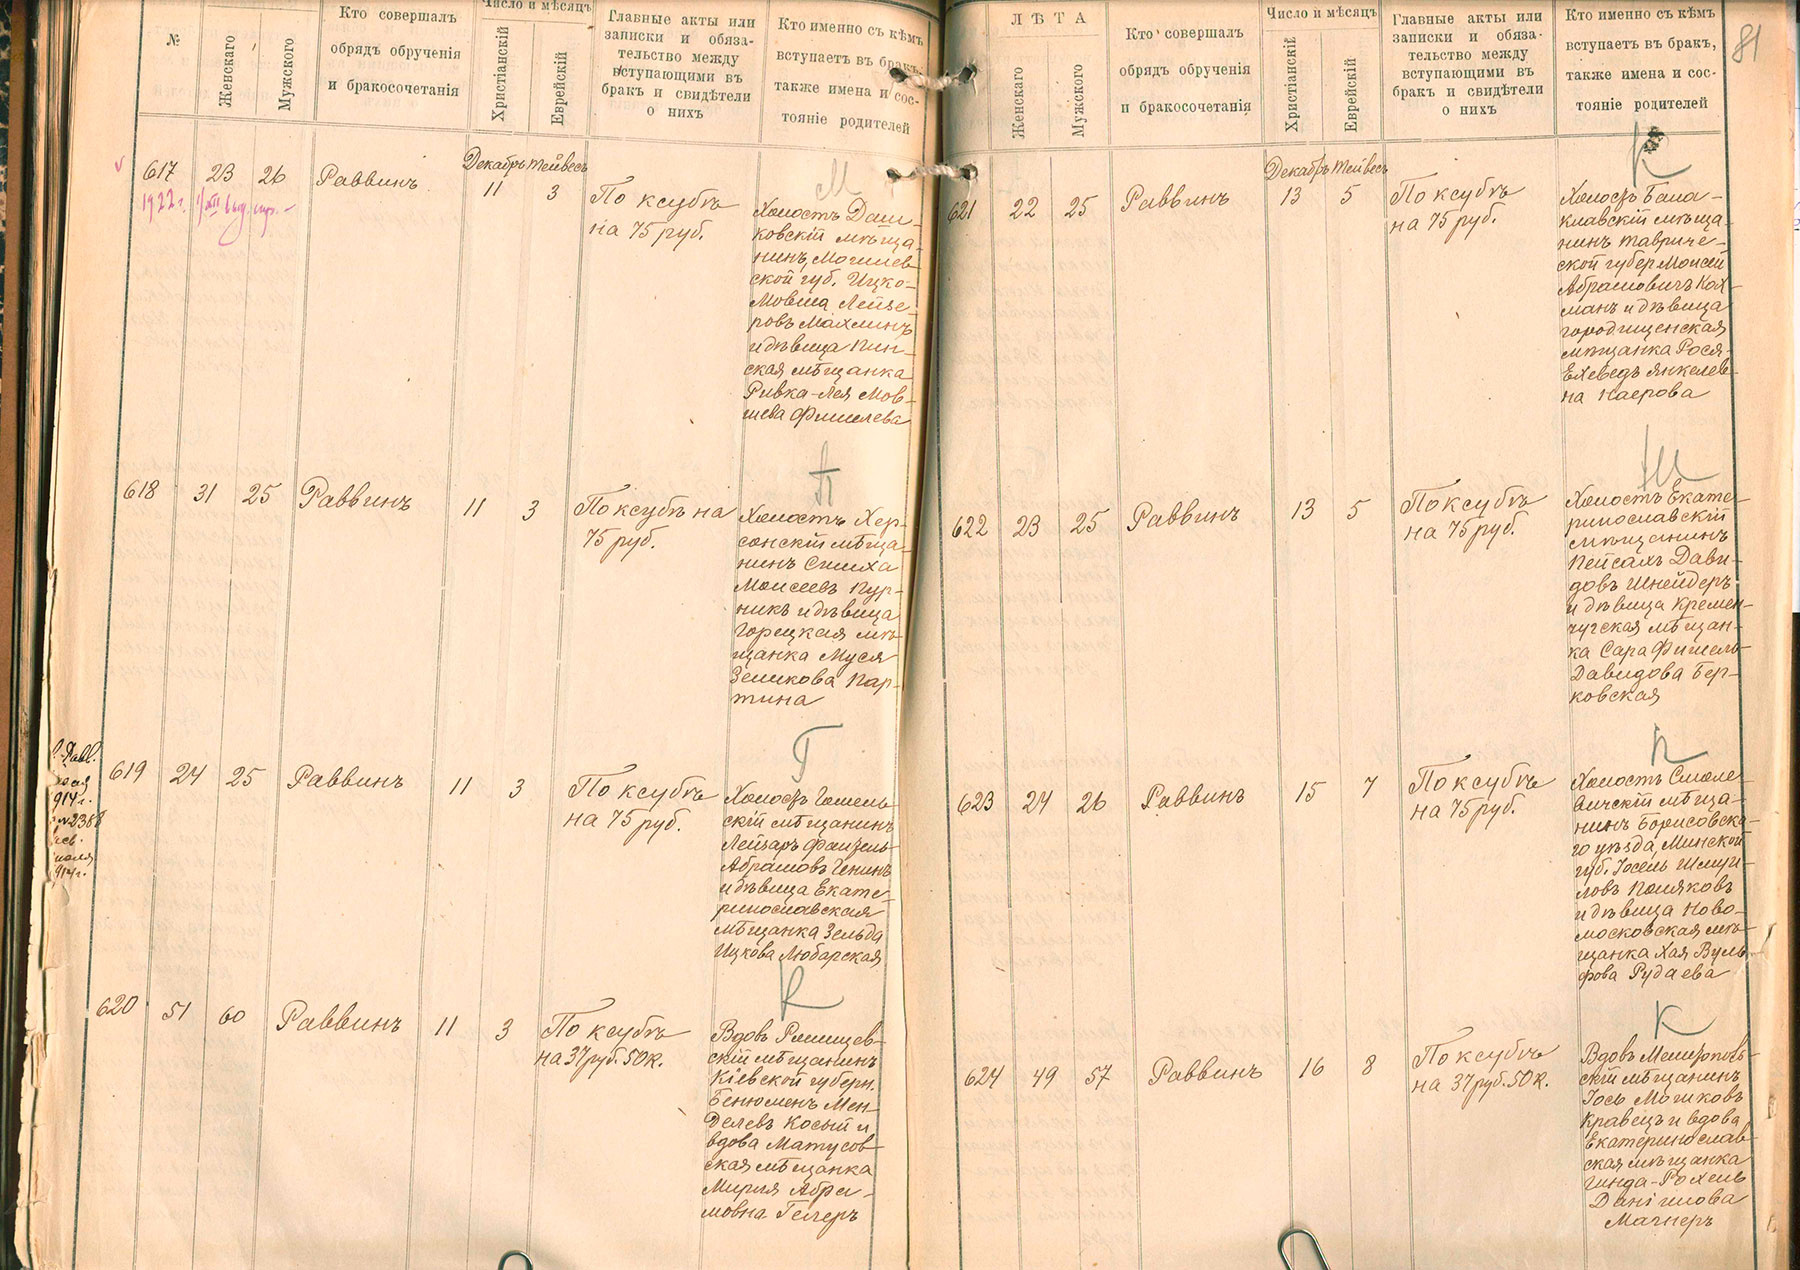 №
Женскаго
Мужского
Кто совершалъ
обрядъ обрученія
и бракосочетанія
Число и мѣсяцъ
Христіанскій
Еврейскій
Главные акты или
записки и обяза-
тельство между
вступающими въ
бракъ и свидѣтели
о нихъ
Кто именно съ кѣмъ
вступаетъ въ бракъ,
также имена и сос-
тояніе родителей
617
23
26
Раввинъ
Декабрь
Тейвесъ
11
3
По ксубѣ
на 75 руб.
М
Холостъ Даш-
ковскій мѣща-
нинъ, Могилев-
ской губ. Ицко-
Мовша Лейзе-
ровъ Махлинъ
и дѣвица Пин-
ская мѣщанка
Ривка-Лея Мов-
шева Фишелева
1922 г.
618
31
25
Раввинъ
11
3
По ксубѣ на
75 руб.
П
Холостъ Хер-
сонскій мѣща-
нинъ Симха
Моисеевъ Пур-
никъ и дѣвица
Горецкая мѣ-
щанка Муся
Зеликова Пар-
тина
914 г.
№ 2388
914 г.
619
24
25
Раввинъ
11
3
По ксубѣ
на 75 руб.
Г
Холостъ Гомель-
скій мѣщанинъ
Лейзаръ Файвель
Абрамовъ Генинъ
и дѣвица Екате-
ринославская
мѣщанка Зельда
Ицкова Любарская
620
51
60
Раввинъ
11
3
По ксубѣ
на 37 руб. 50 к.
К
Вдовъ
скій мѣщанинъ
Кіевской губерн.
Бенюменъ Мен-
делевъ Косый и
вдова Матусов-
ская мѣщанка
Мирля Абра-
мовна Гелеръ
81
ЛѢТА
Женскаго
Мужского
Кто совершалъ
обрядъ обрученія
и бракосочетанія
Число и мѣсяцъ
Христіанскій
Еврейскій
Главные акты или
записки и обяза-
тельство между
вступающими въ
бракъ и свидѣтели
о нихъ
Кто именно съ кѣмъ
вступаетъ въ бракъ,
также имена и сос-
тояніе родителей
621
22
25
Раввинъ
Декабрь
Тейвесъ
13
5
По ксубѣ
на 75 руб.
К
Холостъ Бала-
клавскій мѣща-
нинъ Тавриче-
ской губер Моисей
Абрамовичъ Кох-
манъ и дѣвица
городищенская
мѣщанка Рося-
Ехеведъ Янкелев-
на Каерова
622
23
25
Раввинъ
13
5
По ксубѣ
на 75 руб.
Ш
Холостъ Екате-
ринославскій
мѣщанинъ
Пейсахъ Дави-
довъ Шнейдеръ
и дѣвица Кремен-
чугская мѣщан-
ка Сара Фишель-
Давидова Бер-
ковская
623
24
26
Раввинъ
15
7
По ксубѣ
на 75 руб.
П
Холостъ Смоле-
вичскій мѣща-
нинъ Борисовска-
го уѣзда, Минской
губ. Іосель Шмуи-
ловъ Поляковъ
и дѣвица Ново-
московская мѣ-
щанка Хая Вуль-
фова Рудаева
624
49
57
Раввинъ
16
8
По ксубѣ
на 37 руб. 50 к.
К
Вдовъ Мелитополь-
скій мѣщанинъ
Іось Мошковъ
Кравецъ и вдова
Екатеринослав-
ская мѣщанка
Гинда-Рохель
Даніилова
Магнеръ